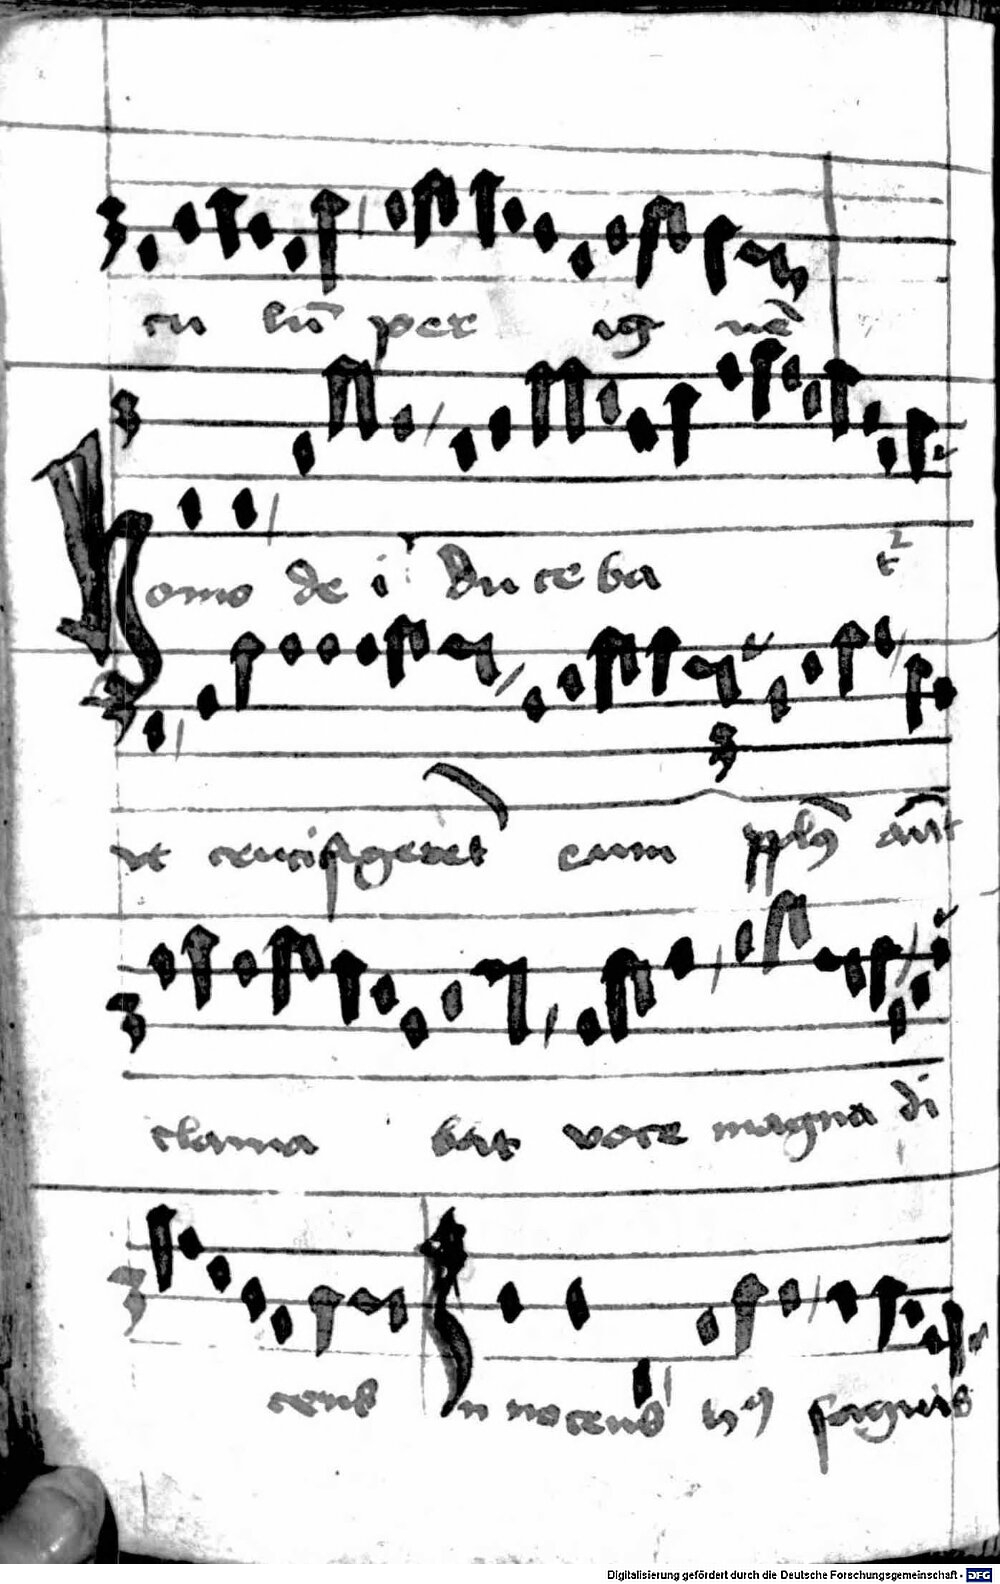 cu lū per ig nē
Homo de i duceba t²
ut crucifigeret eum ppl̄s aūt
clama bat voce magna di
cens Innocens h⁹ sagwis
Digitalisierung gefördert durch die Deutsche Forschungsgemeinschaft - DFG